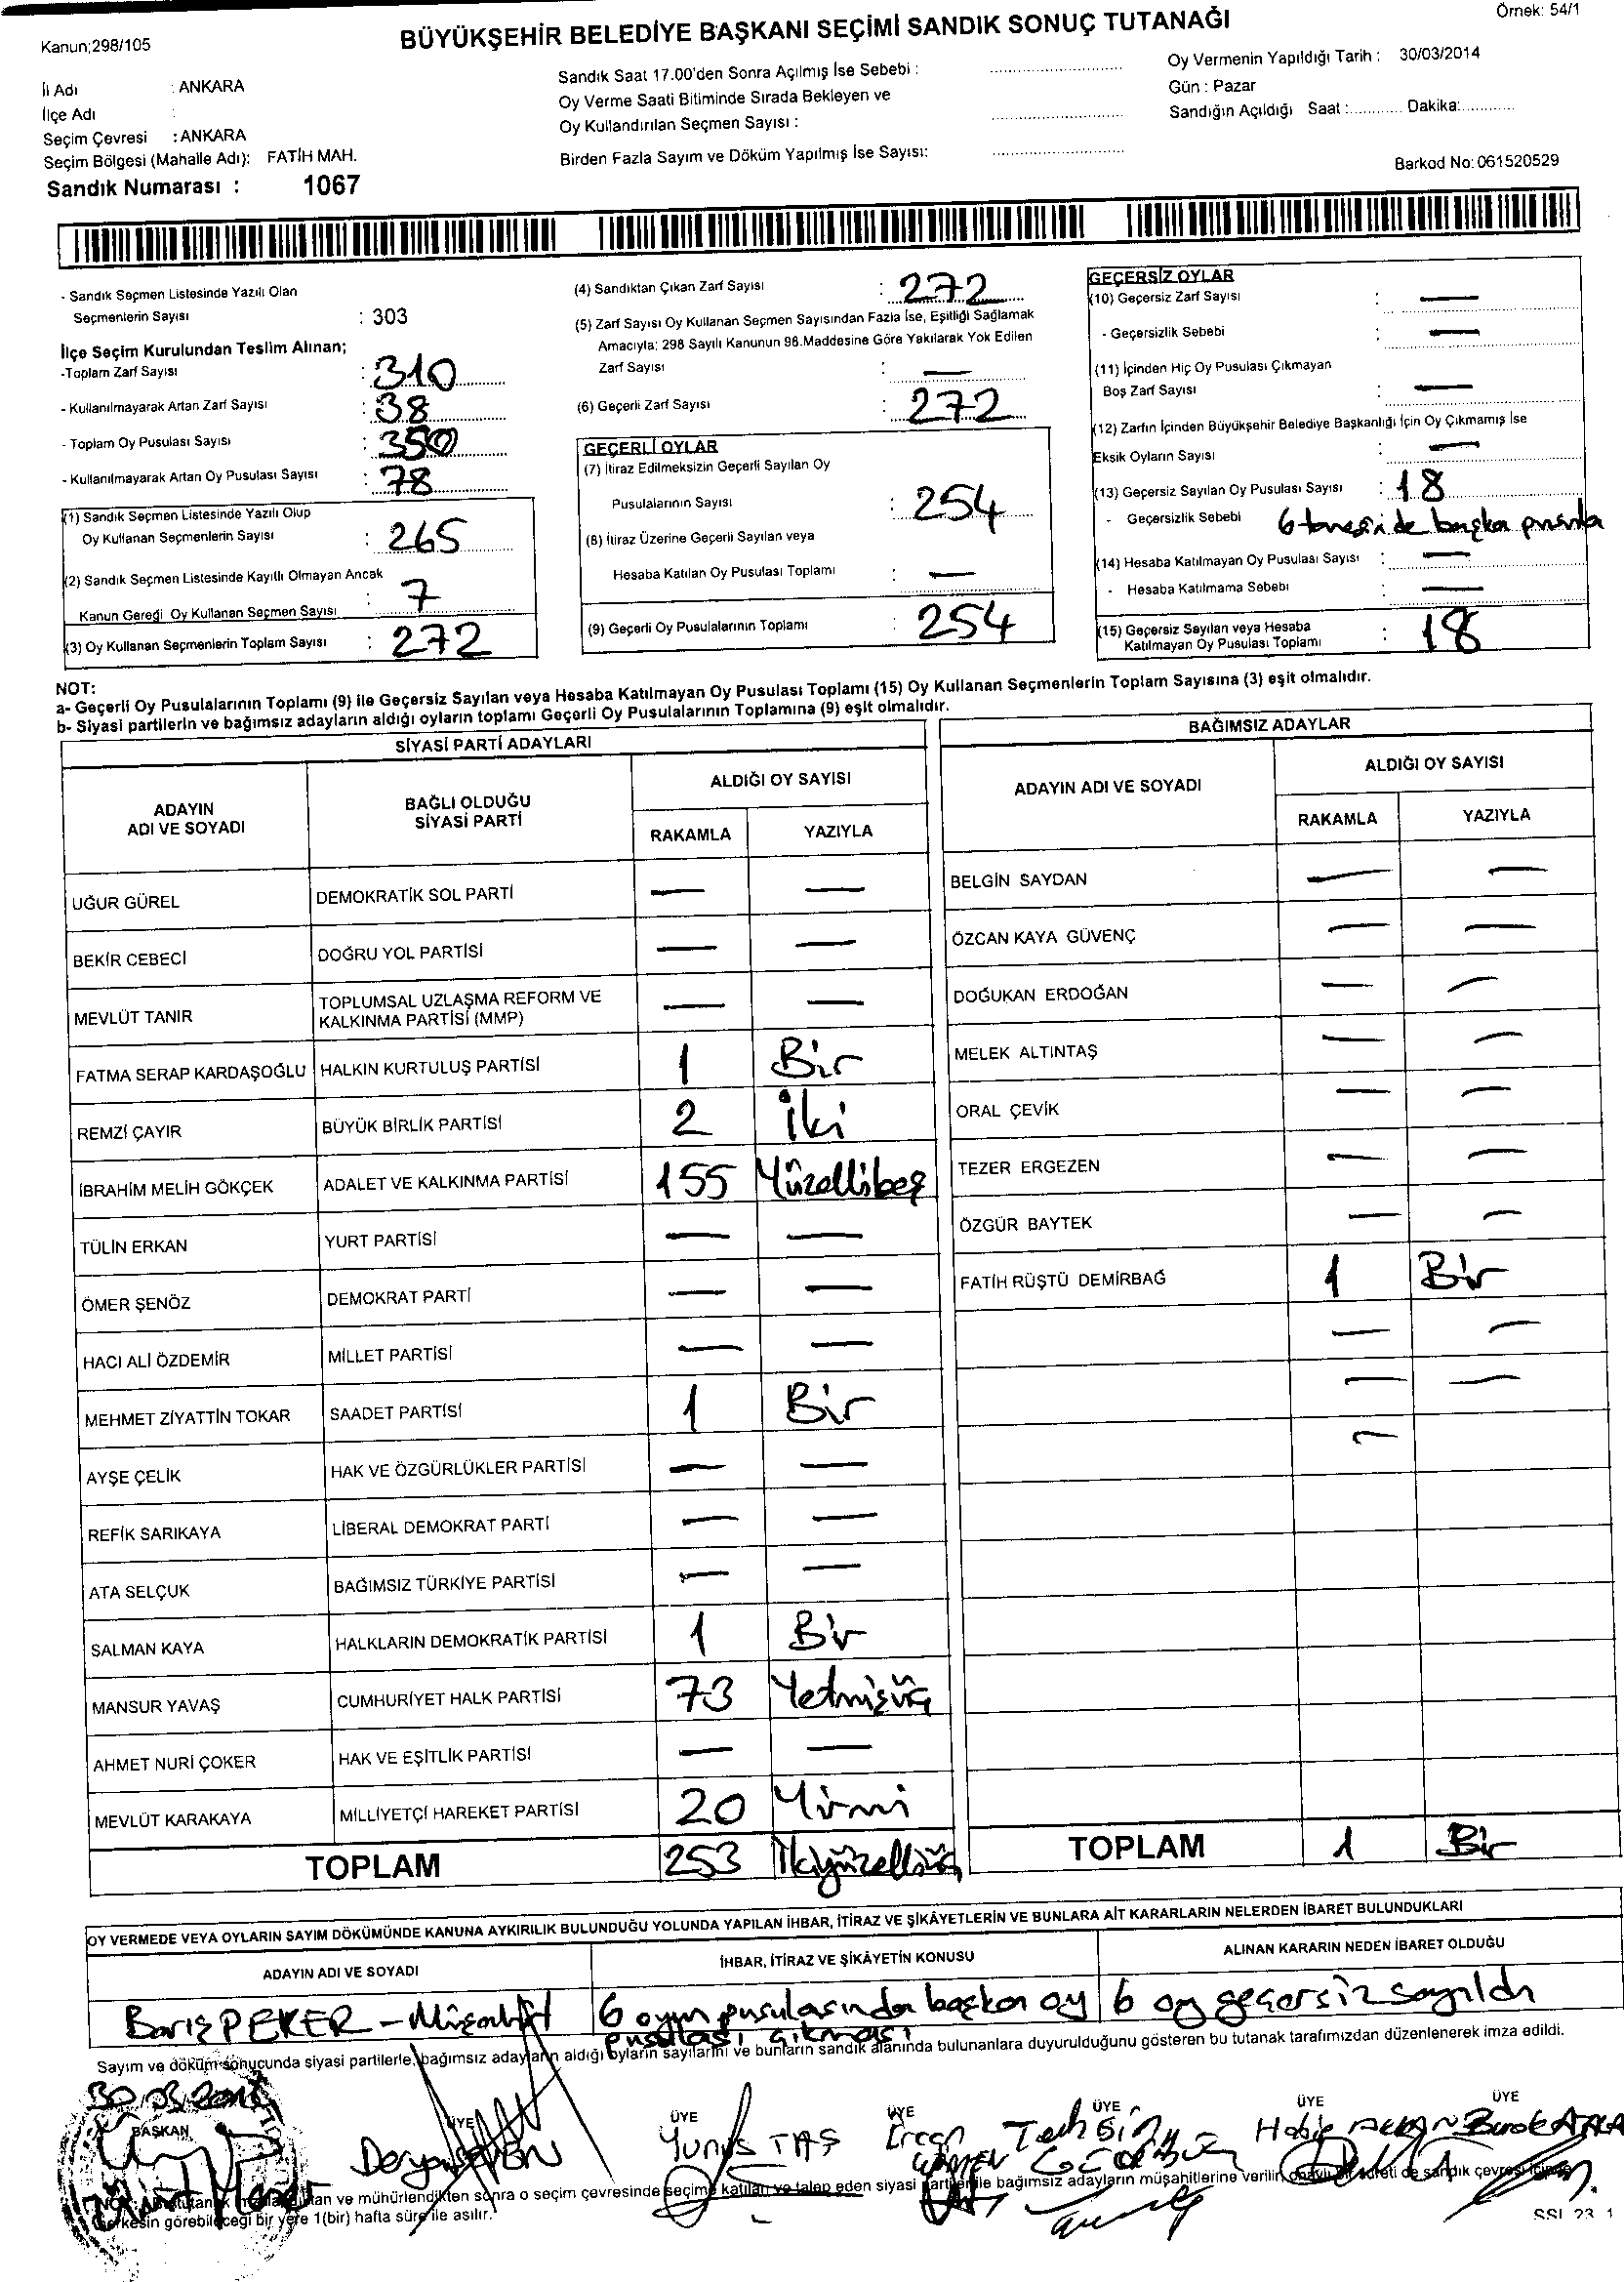 Örnek: 54/1
Kanun;298/105
BÜYÜKŞEHİR BELEDİYE BAŞKANI SEÇİMİ SANDIK SONUÇ TUTANAĞI
İl Adı : ANKARA
İlçe Adı :
Seçim Çevresi : ANKARA
Seçim Bölgesi (Mahalle Adı): FATİH MAH.
Sandık Numarası : 1067
Sandık Saat 17.00'den Sonra Açılmış İse Sebebi :
Oy Verme Saati Bitiminde Sırada Bekleyen ve
Oy Kullandırılan Seçmen Sayısı :
Birden Fazla Sayım ve Döküm Yapılmış İse Sayısı:
Oy Vermenin Yapıldığı Tarih : 30/03/2014
Gün : Pazar
Sandığın Açıldığı Saat : Dakika:
Barkod No: 061520529
- Sandık Seçmen Listesinde Yazılı Olan
Seçmenlerin Sayısı : 303
İlçe Seçim Kurulundan Teslim Alınan;
-Toplam Zarf Sayısı : 310
- Kullanılmayarak Artan Zarf Sayısı : 38
- Toplam Oy Pusulası Sayısı : 350
- Kullanılmayarak Artan Oy Pusulası Sayısı : 78
(1) Sandık Seçmen Listesinde Yazılı Olup
Oy Kullanan Seçmenlerin Sayısı : 265
(2) Sandık Seçmen Listesinde Kayıtlı Olmayan Ancak
Kanun Gereği Oy Kullanan Seçmen Sayısı : 7
(3) Oy Kullanan Seçmenlerin Toplam Sayısı : 272
(4) Sandıktan Çıkan Zarf Sayısı : 272
(5) Zarf Sayısı Oy Kullanan Seçmen Sayısından Fazla İse, Eşitliği Sağlamak
Amacıyla; 298 Sayılı Kanunun 98.Maddesine Göre Yakılarak Yok Edilen
Zarf Sayısı : —
(6) Geçerli Zarf Sayısı : 272
GEÇERLİ OYLAR
(7) İtiraz Edilmeksizin Geçerli Sayılan Oy
Pusulalarının Sayısı : 254
(8) İtiraz Üzerine Geçerli Sayılan veya
Hesaba Katılan Oy Pusulası Toplamı : —
(9) Geçerli Oy Pusulalarının Toplamı : 254
GEÇERSİZ OYLAR
(10) Geçersiz Zarf Sayısı : —
- Geçersizlik Sebebi : —
(11) İçinden Hiç Oy Pusulası Çıkmayan
Boş Zarf Sayısı : —
(12) Zarfın İçinden Büyükşehir Belediye Başkanlığı İçin Oy Çıkmamış İse
Eksik Oyların Sayısı : —
(13) Geçersiz Sayılan Oy Pusulası Sayısı : 18
- Geçersizlik Sebebi 6 tanesinde başka pusula
(14) Hesaba Katılmayan Oy Pusulası Sayısı : —
- Hesaba Katılmama Sebebi : —
(15) Geçersiz Sayılan veya Hesaba
Katılmayan Oy Pusulası Toplamı : 18
NOT:
a- Geçerli Oy Pusulalarının Toplamı (9) ile Geçersiz Sayılan veya Hesaba Katılmayan Oy Pusulası Toplamı (15) Oy Kullanan Seçmenlerin Toplam Sayısına (3) eşit olmalıdır.
b- Siyasi partilerin ve bağımsız adayların aldığı oyların toplamı Geçerli Oy Pusulalarının Toplamına (9) eşit olmalıdır.
SİYASİ PARTİ ADAYLARI
ADAYIN
ADI VE SOYADI
BAĞLI OLDUĞU
SİYASİ PARTİ
ALDIĞI OY SAYISI
RAKAMLA YAZIYLA
UĞUR GÜREL DEMOKRATİK SOL PARTİ — —
BEKİR CEBECİ DOĞRU YOL PARTİSİ — —
MEVLÜT TANIR TOPLUMSAL UZLAŞMA REFORM VE
KALKINMA PARTİSİ (MMP) — —
FATMA SERAP KARDAŞOĞLU HALKIN KURTULUŞ PARTİSİ 1 Bir
REMZİ ÇAYIR BÜYÜK BİRLİK PARTİSİ 2 İki
İBRAHİM MELİH GÖKÇEK ADALET VE KALKINMA PARTİSİ 155 Yüzellibeş
TÜLİN ERKAN YURT PARTİSİ — —
ÖMER ŞENÖZ DEMOKRAT PARTİ — —
HACI ALİ ÖZDEMİR MİLLET PARTİSİ — —
MEHMET ZİYATTİN TOKAR SAADET PARTİSİ 1 Bir
AYŞE ÇELİK HAK VE ÖZGÜRLÜKLER PARTİSİ — —
REFİK SARIKAYA LİBERAL DEMOKRAT PARTİ — —
ATA SELÇUK BAĞIMSIZ TÜRKİYE PARTİSİ — —
SALMAN KAYA HALKLARIN DEMOKRATİK PARTİSİ 1 Bir
MANSUR YAVAŞ CUMHURİYET HALK PARTİSİ 73 Yetmişüç
AHMET NURİ ÇOKER HAK VE EŞİTLİK PARTİSİ — —
MEVLÜT KARAKAYA MİLLİYETÇİ HAREKET PARTİSİ 20 Yirmi
TOPLAM 253 İkiyüzelliüç
BAĞIMSIZ ADAYLAR
ADAYIN ADI VE SOYADI
ALDIĞI OY SAYISI
RAKAMLA YAZIYLA
BELGİN SAYDAN — —
ÖZCAN KAYA GÜVENÇ — —
DOĞUKAN ERDOĞAN — —
MELEK ALTINTAŞ — —
ORAL ÇEVİK — —
TEZER ERGEZEN — —
ÖZGÜR BAYTEK — —
FATİH RÜŞTÜ DEMİRBAĞ 1 Bir
— —
— —
—
TOPLAM 1 Bir
OY VERMEDE VEYA OYLARIN SAYIM DÖKÜMÜNDE KANUNA AYKIRILIK BULUNDUĞU YOLUNDA YAPILAN İHBAR, İTİRAZ VE ŞİKÂYETLERİN VE BUNLARA AİT KARARLARIN NELERDEN İBARET BULUNDUKLARI
ADAYIN ADI VE SOYADI İHBAR, İTİRAZ VE ŞİKÂYETİN KONUSU ALINAN KARARIN NEDEN İBARET OLDUĞU
Barış PEKER - Müşahit
6 oyun pusulasından başka oy
pusulası çıkması
6 oy geçersiz sayıldı
Sayım ve döküm sonucunda siyasi partilerle, bağımsız adayların aldığı oyların sayılarını ve bunların sandık alanında bulunanlara duyurulduğunu gösteren bu tutanak tarafımızdan düzenlenerek imza edildi.
BAŞKAN ÜYE ÜYE ÜYE ÜYE ÜYE ÜYE
Yunus TAŞ
ve mühürlendikten sonra o seçim çevresinde seçime katılan ve talep eden siyasi partiler ile bağımsız adayların müşahitlerine verilir,
görebileceği bir yere 1(bir) hafta süre ile asılır.